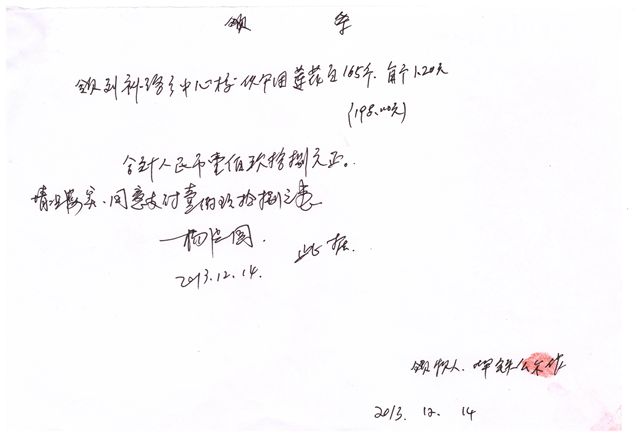 领 单
领到 中心校伙食团莲花白165斤，每斤1.20元
(198.00元)
合计人民币壹佰玖拾捌元正。
情况属实，同意支付壹佰玖拾捌元
杨
2013.12.14.
此据.
领款人：
2013. 12. 14